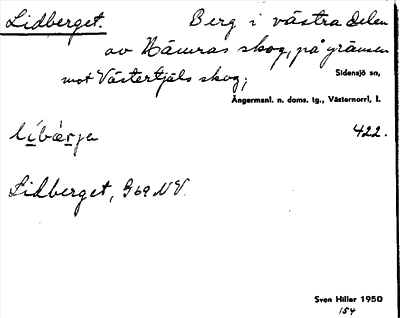 Lidberget. Berg i västra delen
av Nämras skog, på gränsen
mot Västertjäls skog;
Sidensjö sn,
Ångermanl. n. doms. tg., Västernorrl, l.
líbærja 422.
Lidberget, G 69 NV.
Sven Hiller 1950
154